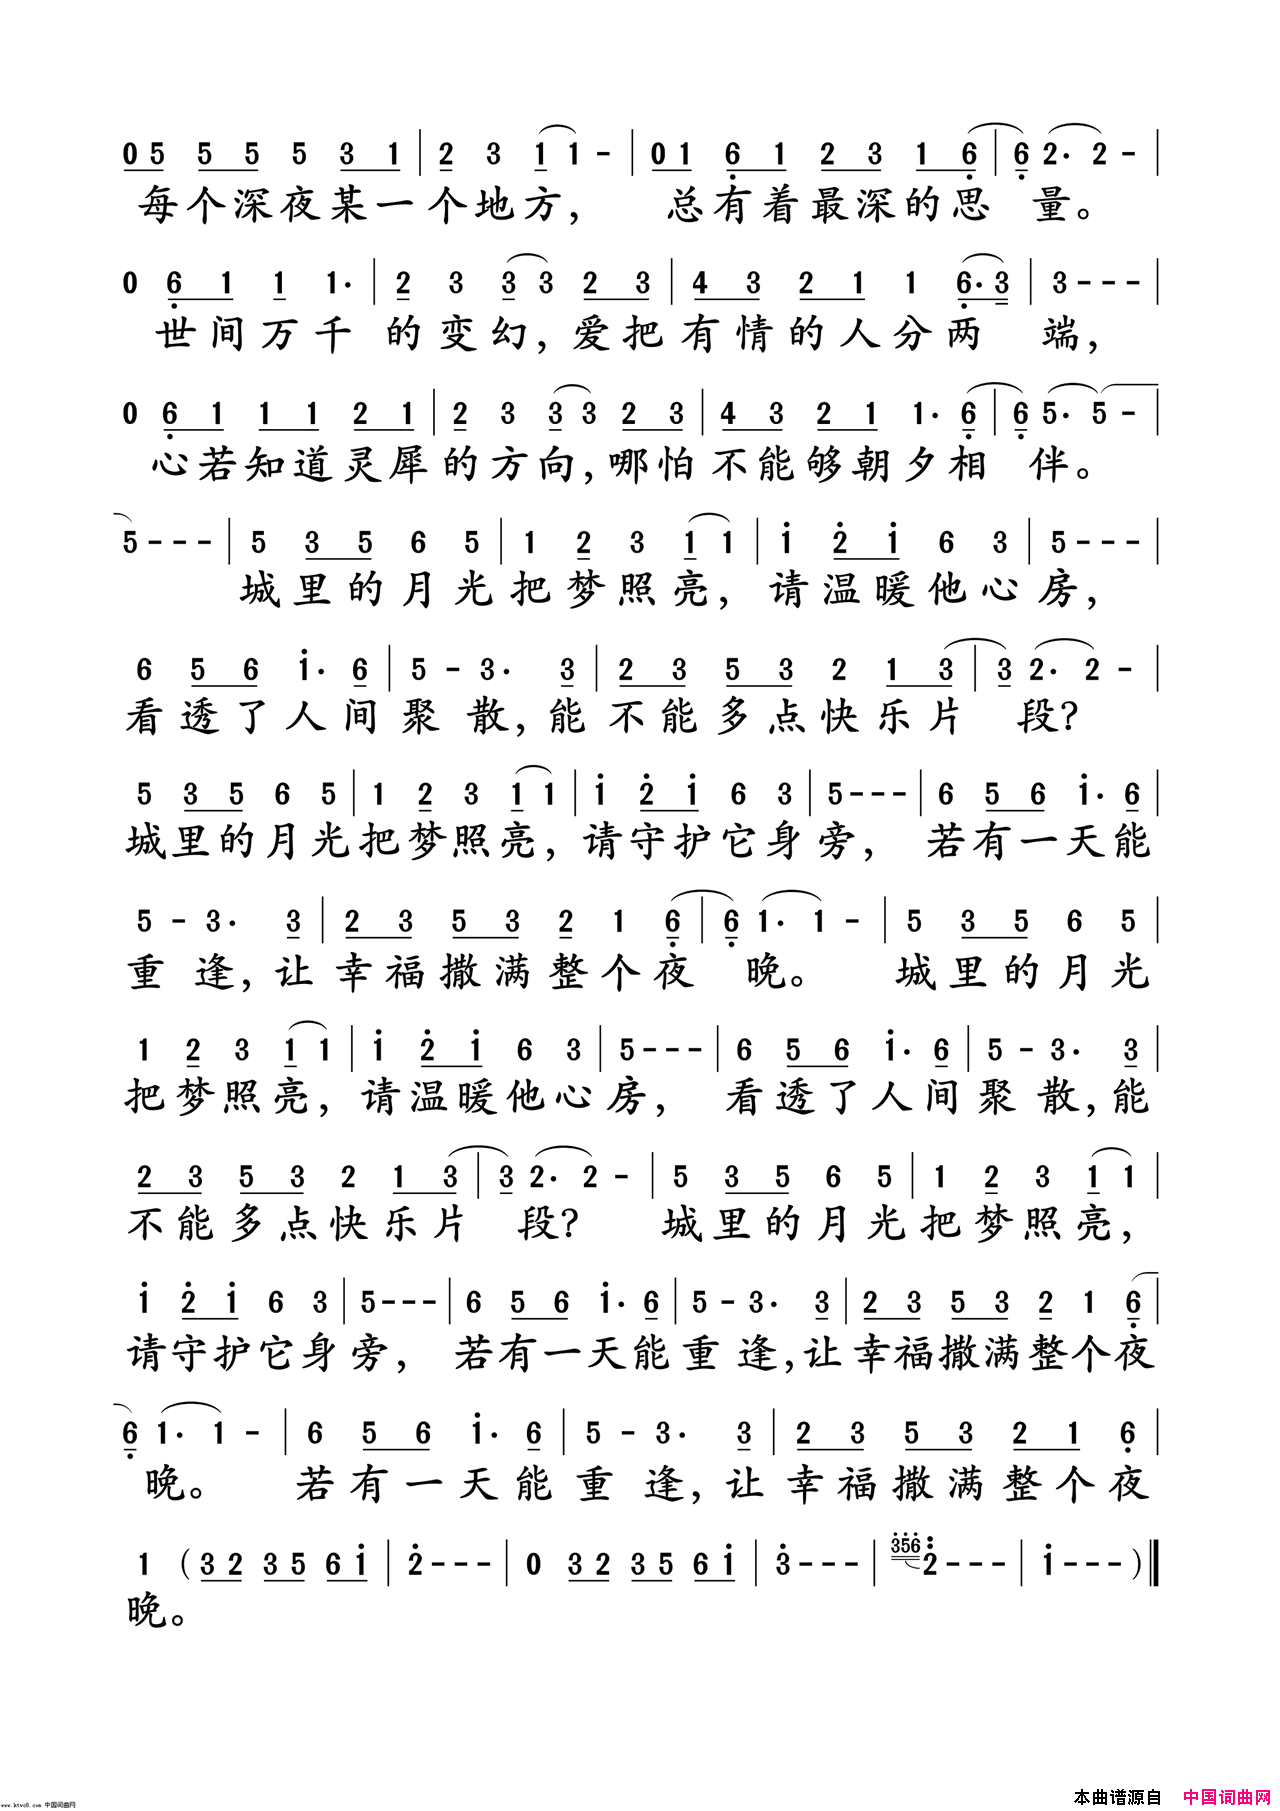 05 55 5 31 | 2 3 11 - | 01 61 23 16 | 6 2· 2 - |
每个深夜某一个地方， 总有着最深的思 量。
0 61 1 1· | 2 3 3 3 23 | 43 21 1 6·3 | 3 - - - |
世间万千 的变幻，爱把有情的人分两 端，
0 61 11 21 | 2 3 3 3 23 | 43 21 1· 6 | 6 5· 5 - |
心若知道灵犀的方向，哪怕不能够朝夕相 伴。
5 - - - | 5 35 6 5 | 1 2 3 1 1 | i 2i 6 3 | 5 - - - |
城里的月光把梦照亮，请温暖他心房，
6 56 i· 6 | 5 - 3· 3 | 23 53 2 13 | 3 2· 2 - |
看透了人间聚 散，能不能多点快乐片 段？
5 35 6 5 | 1 2 3 1 1 | i 2i 6 3 | 5 - - - | 6 56 i· 6 |
城里的月光把梦照亮，请守护它身旁， 若有一天能
5 - 3· 3 | 23 53 2 1 6 | 6 1· 1 - | 5 35 6 5 |
重 逢，让幸福撒满整个夜 晚。 城里的月光
1 2 3 1 1 | i 2i 6 3 | 5 - - - | 6 56 i· 6 | 5 - 3· 3 |
把梦照亮，请温暖他心房， 看透了人间聚 散，能
23 53 2 13 | 3 2· 2 - | 5 35 6 5 | 1 2 3 1 1 |
不能多点快乐片 段？ 城里的月光把梦照亮，
i 2i 6 3 | 5 - - - | 6 56 i· 6 | 5 - 3· 3 | 23 53 2 1 6 |
请守护它身旁， 若有一天能重 逢，让幸福撒满整个夜
6 1· 1 - | 6 56 i· 6 | 5 - 3· 3 | 23 53 21 6 |
晚。 若有一天能重 逢，让幸福撒满整个夜
1 （32 35 6i | 2 - - - | 0 32 35 6i | 3 - - - | 356 2 - - - | i - - - ）‖
晚。
www.ktvc8.com 中国词曲网
本曲谱源自 中国词曲网